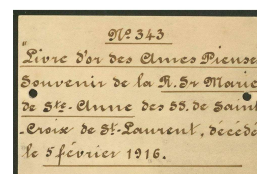 Nº 343
"Livre d'or des Ames Pieuse
Souvenir de la R. Sr Marie
de Ste-Anne des SS. de Saint
-Croix de St-Laurent, décédé
le 5 février 1916.